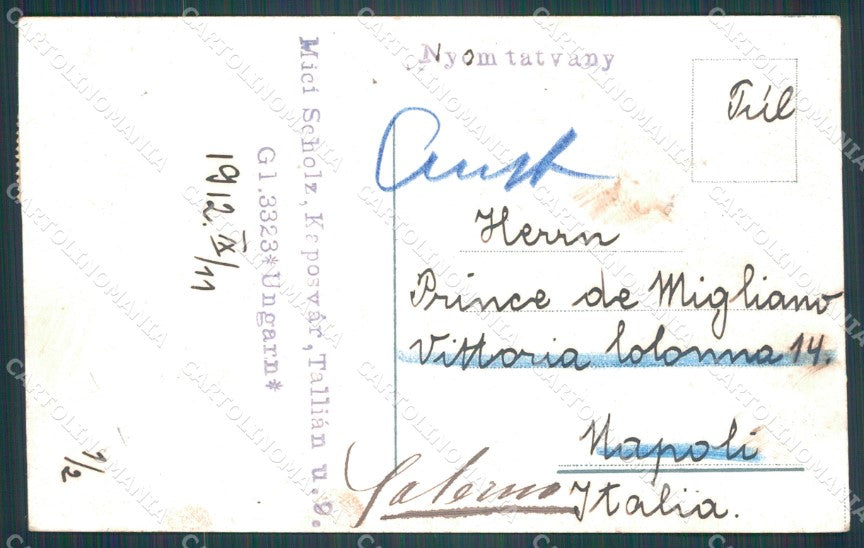 Nyomtatvány
Túl
Herrn
Prince de Migliano
Vittoria Colonna 14.
Napoli
Italia.
Salerno
Mici Scholz, Kaposvár, Tallián u. 9.
Gl. 3323*Ungarn*
1912. IX/11
1/2
CARTOLINOMANIA